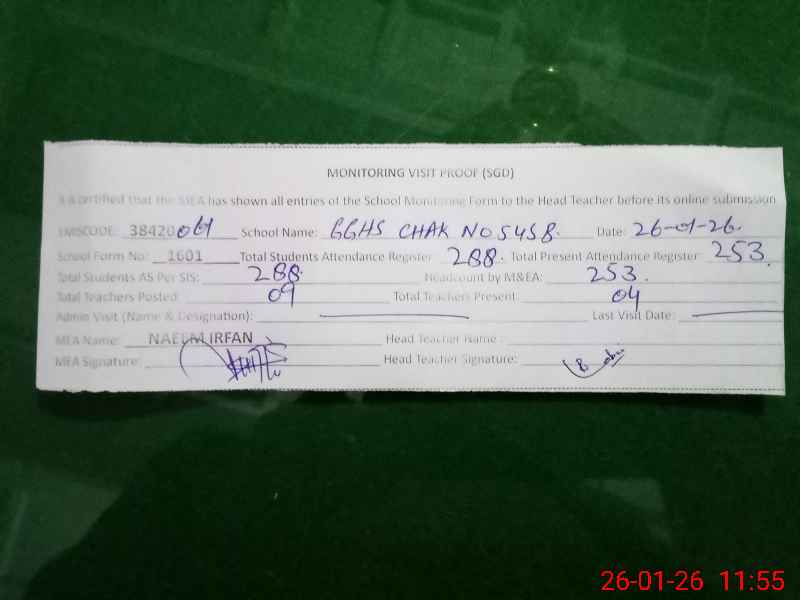 MONITORING VISIT PROOF (SGD)
It is certified that the MEA has shown all entries of the School Monitoring Form to the Head Teacher before its online submission
EMISCODE: 38420061 School Name: GGHS CHAK NO 54SB. Date: 26-01-26.
School Form No: 1601 Total Students Attendance Register 288. Total Present Attendance Register 253.
Total Students AS Per SIS: 288 Headcount by M&EA: 253.
Total Teachers Posted: 09 Total Teachers Present: 04
Admin Visit (Name & Designation): Last Visit Date:
MEA Name: NAEEM IRFAN Head Teacher Name:
MEA Signature: Head Teacher Signature:
26-01-26 11:55